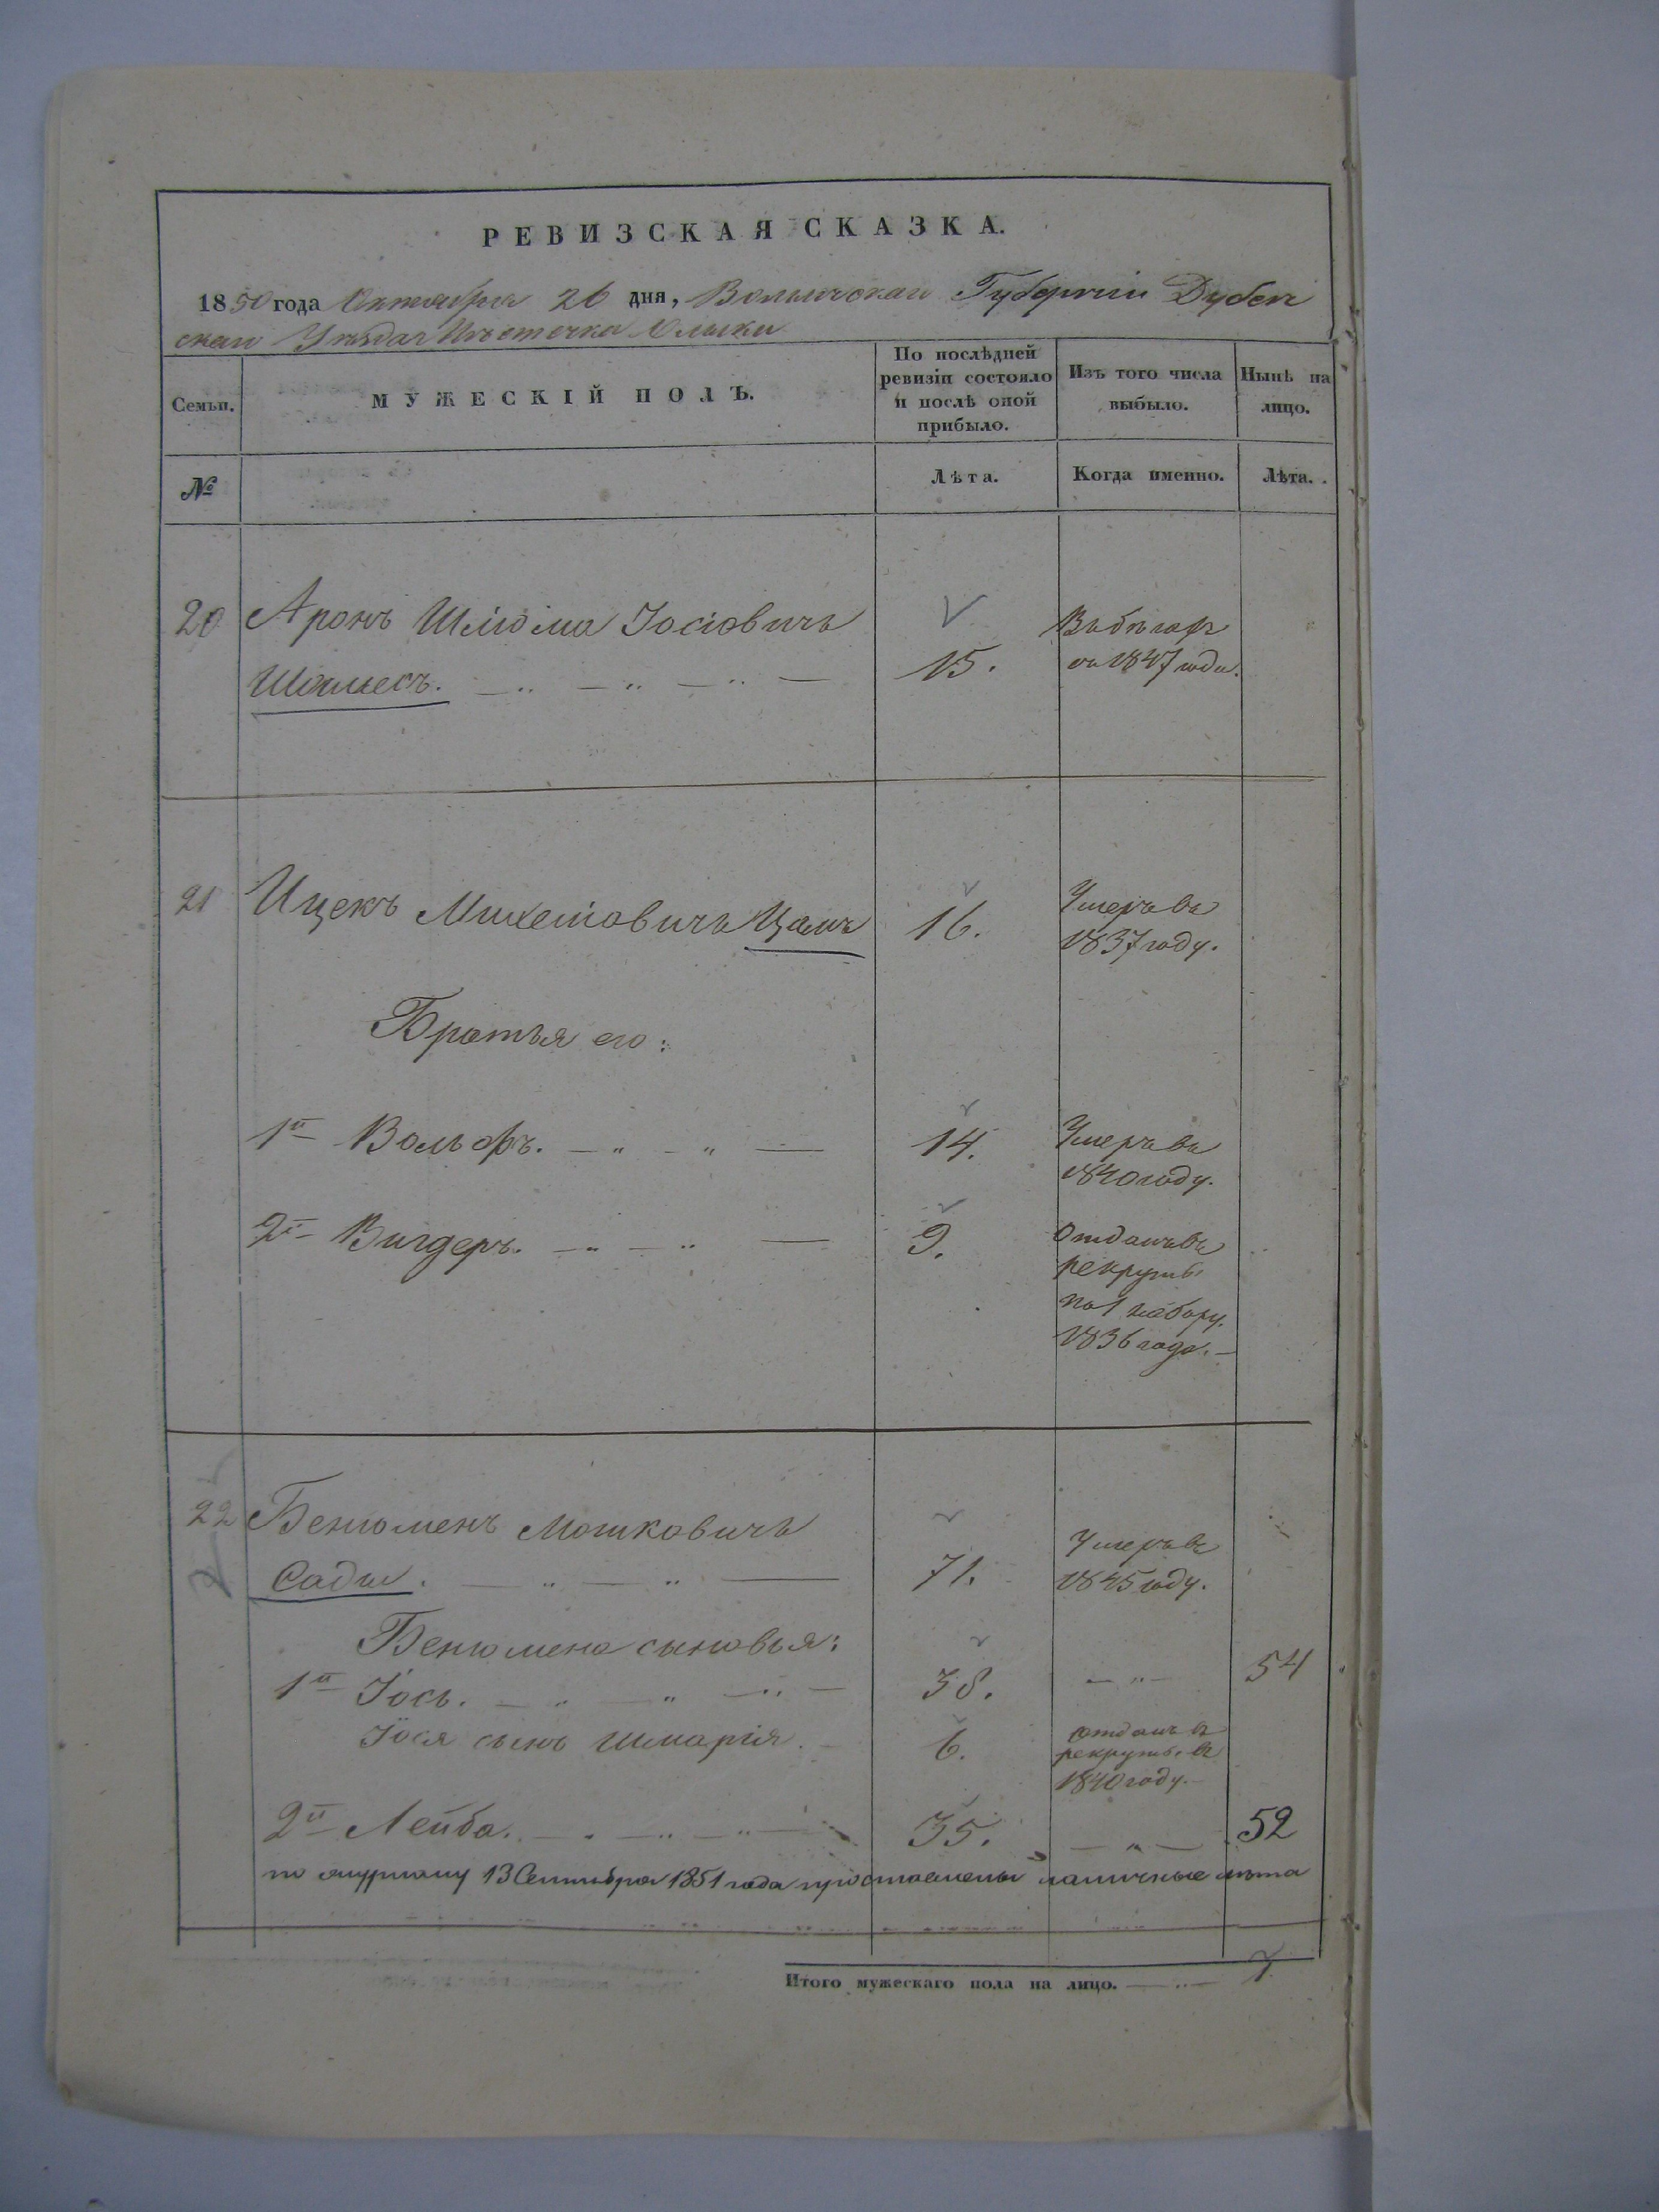 РЕВИЗСКАЯ СКАЗКА.
1850 года Октября 26 дня, Волынской Губерніи Дубен
ской Уѣзда Мѣстечка Олыки
Семьи.
МУЖЕСКІЙ ПОЛЪ.
По послѣдней
ревизіи состояло
и послѣ оной
прибыло.
Изъ того числа
выбыло.
Нынѣ на
лицо.
№
Лѣта.
Когда именно.
Лѣта.
20 Аронъ Шліома Іосіовичъ
Шамесъ. 15.
въ 1847 года.
21 Ицекъ Михелiовичъ Цамъ 16. Умеръ въ
1837 году.
Братья его:
1й Вольфъ. 14. Умеръ въ
1840 году.
2й Вигдеръ. 9. Отданъ въ
рекруты
по 1 набору
1836 года.
22 Бенюменъ Мошковичъ
Сады. 71. Умеръ въ
1845 году.
Бенюмена сыновья:
1й Іось. 38. 54
Іося сынъ Шмарія. 6. отданъ въ
рекруты въ
1840 году.
2й Лейба. 35. 52
по журналу 13 Сентября 1851 года проставлены наличные лѣта
Итого мужескаго пола на лицо.